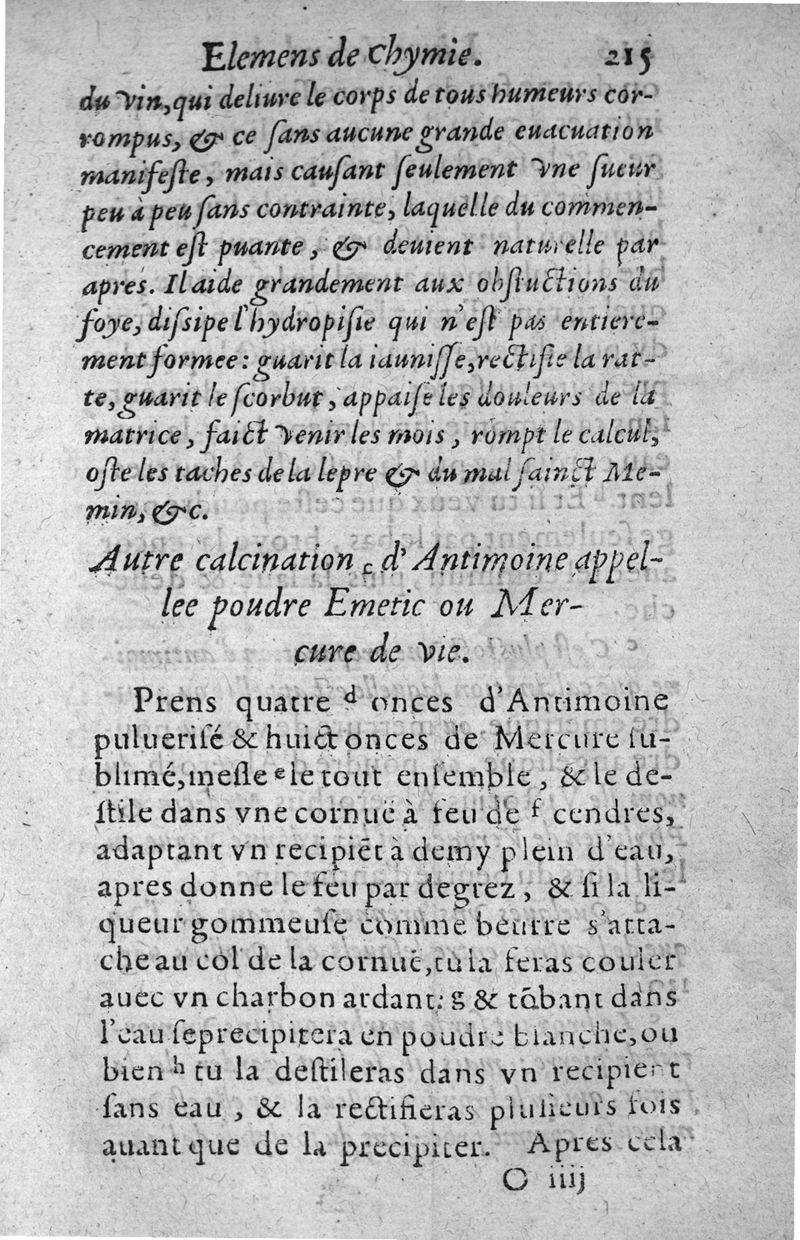 Elemens de Chymie. 215
du vin, qui deliure le corps de tous humeurs cor-
rompus, & ce ſans aucune grande euacuation
manifeſte, mais cauſant ſeulement vne ſueur
peu à peu ſans contrainte, laquelle du commen-
cement eſt puante, & deuient naturelle par
apres. Il aide grandement aux obſtuctions du
foye, diſsipe l'hydropiſie qui n'eſt pas entiere-
ment formee: guarit la iauniſſe, rectifie la rat-
te, guarit le ſcorbut, appaiſe les douleurs de la
matrice, faict venir les mois, rompt le calcul,
oſte les taches de la lepre & du mal ſainct Me-
min, &c.
Autre calcination c d'Antimoine appel-
lee poudre Emetic ou Mer-
cure de vie.
Prens quatre d onces d'Antimoine
puluerisé & huict onces de Mercure ſu-
blimé, meſle e le tout enſemble, & le de-
ſtile dans vne cornuë à feu de f cendres,
adaptant vn recipiẽt à demy plein d'eau,
apres donne le feu par degrez, & ſi la li-
queur gommeuſe comme beurre s'atta-
che au col de la cornuë, tu la feras couler
auec vn charbon ardant: g & tõbant dans
l'eau ſe precipitera en poudre blanche, ou
bien h tu la deſtileras dans vn recipient
ſans eau, & la rectifieras pluſieurs fois
auant que de la precipiter. Apres cela
O iiij